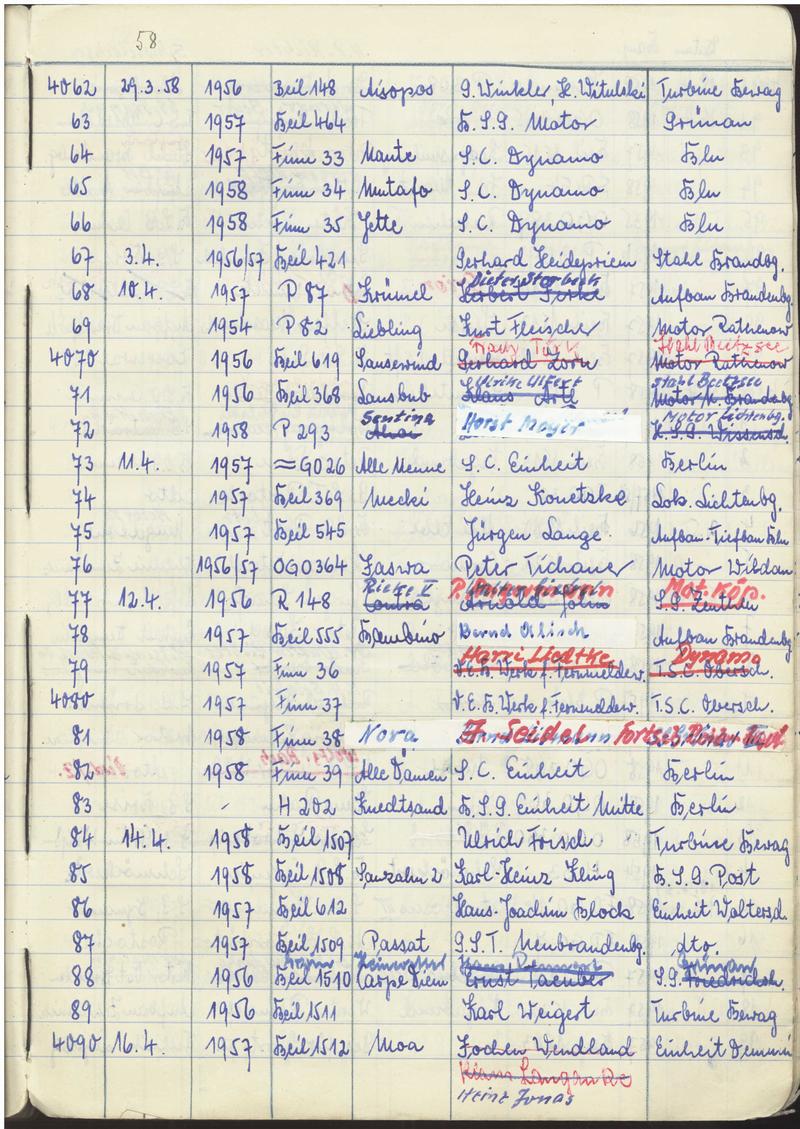 58
4062 29.3.58 1956 Beil 148 Aisopos G. Winkler, H. Witulski Turbine Bewag
63 1957 Beil 464 B.S.G. Motor Grünau
64 1957 Finn 33 Mante S.C. Dynamo Bln
65 1958 Finn 34 Mutafo S.C. Dynamo Bln
66 1958 Finn 35 Jette S.C. Dynamo Bln
67 3.4. 1956/57 Beil 421 Gerhard Heidepriem Stahl Brandbg.
Dieter Storbeck
68 10.4. 1957 P 87 Krümel Aufbau Brandenbg.
69 1954 P 82 Liebling Kurt Fleischer Motor Rathenow
Stahl Beetzsee
4070 1956 Beil 619 Sausewind Gerhard Zorn Motor Rathenow
Ulrike Ulfert Stahl Beetzsee
71 1956 Beil 368 Lausbub Klaus Motor M. Brandbg
Sentina Motor Lichtenbg.
72 1958 P 293 Horst Mayer
73 11.4. 1957 ≈ GO26 Alle Menne S.C. Einheit Berlin
74 1957 Beil 369 Mecki Heinz Konetzke Lok. Lichtenbg.
75 1957 Beil 545 Jürgen Lange Aufbau-Tiefbau Bln
76 1956/57 OGO364 Jaswa Peter Tichauer Motor Wildau
Rieke II Mot. Köp.
77 12.4. 1956 R 148 Contra Arnold John S.G. Zeuthen
78 1957 Beil 555 Bambino Bernd Aufbau Brandenbg
Harri Liedtke Dynamo
79 1957 Finn 36 V.E.B. Werk f. Fernmeldew. T.S.C. Obersch.
4080 1957 Finn 37 V.E.B. Werk f. Fernmeldew. T.S.C. Obersch.
81 1958 Finn 38 Nora Seidel
82 1958 Finn 39 Alle Damen S.C. Einheit Berlin
83 - H 202 Knechtsand B.S.G. Einheit Mitte Berlin
84 14.4. 1958 Beil 1507 Ulrich Frisch Turbine Bewag
85 1958 Beil 1508 Sauzahn 2 Karl-Heinz Kling B.S.G. Post
86 1957 Beil 612 Hans-Joachim Block Einheit Woltersd.
87 1957 Beil 1509 Passat G.S.T. Neubrandenbg. dto.
Grünau
88 1956 Beil 1510 Carpe Diem Ernst Taeuber S.G. Friedrichsh.
89 1956 Beil 1511 Karl Weigert Turbine Bewag
4090 16.4. 1957 Beil 1512 Moa Jochen Wendland Einheit Demmin
Heinz Jonas